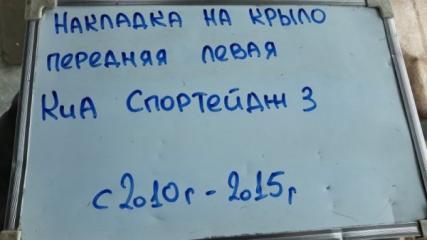 НАКЛАДКА НА КРЫЛО
ПЕРЕДНЯЯ ЛЕВАЯ
КИА СПОРТЕЙДЖ 3
с 2010г - 2015г